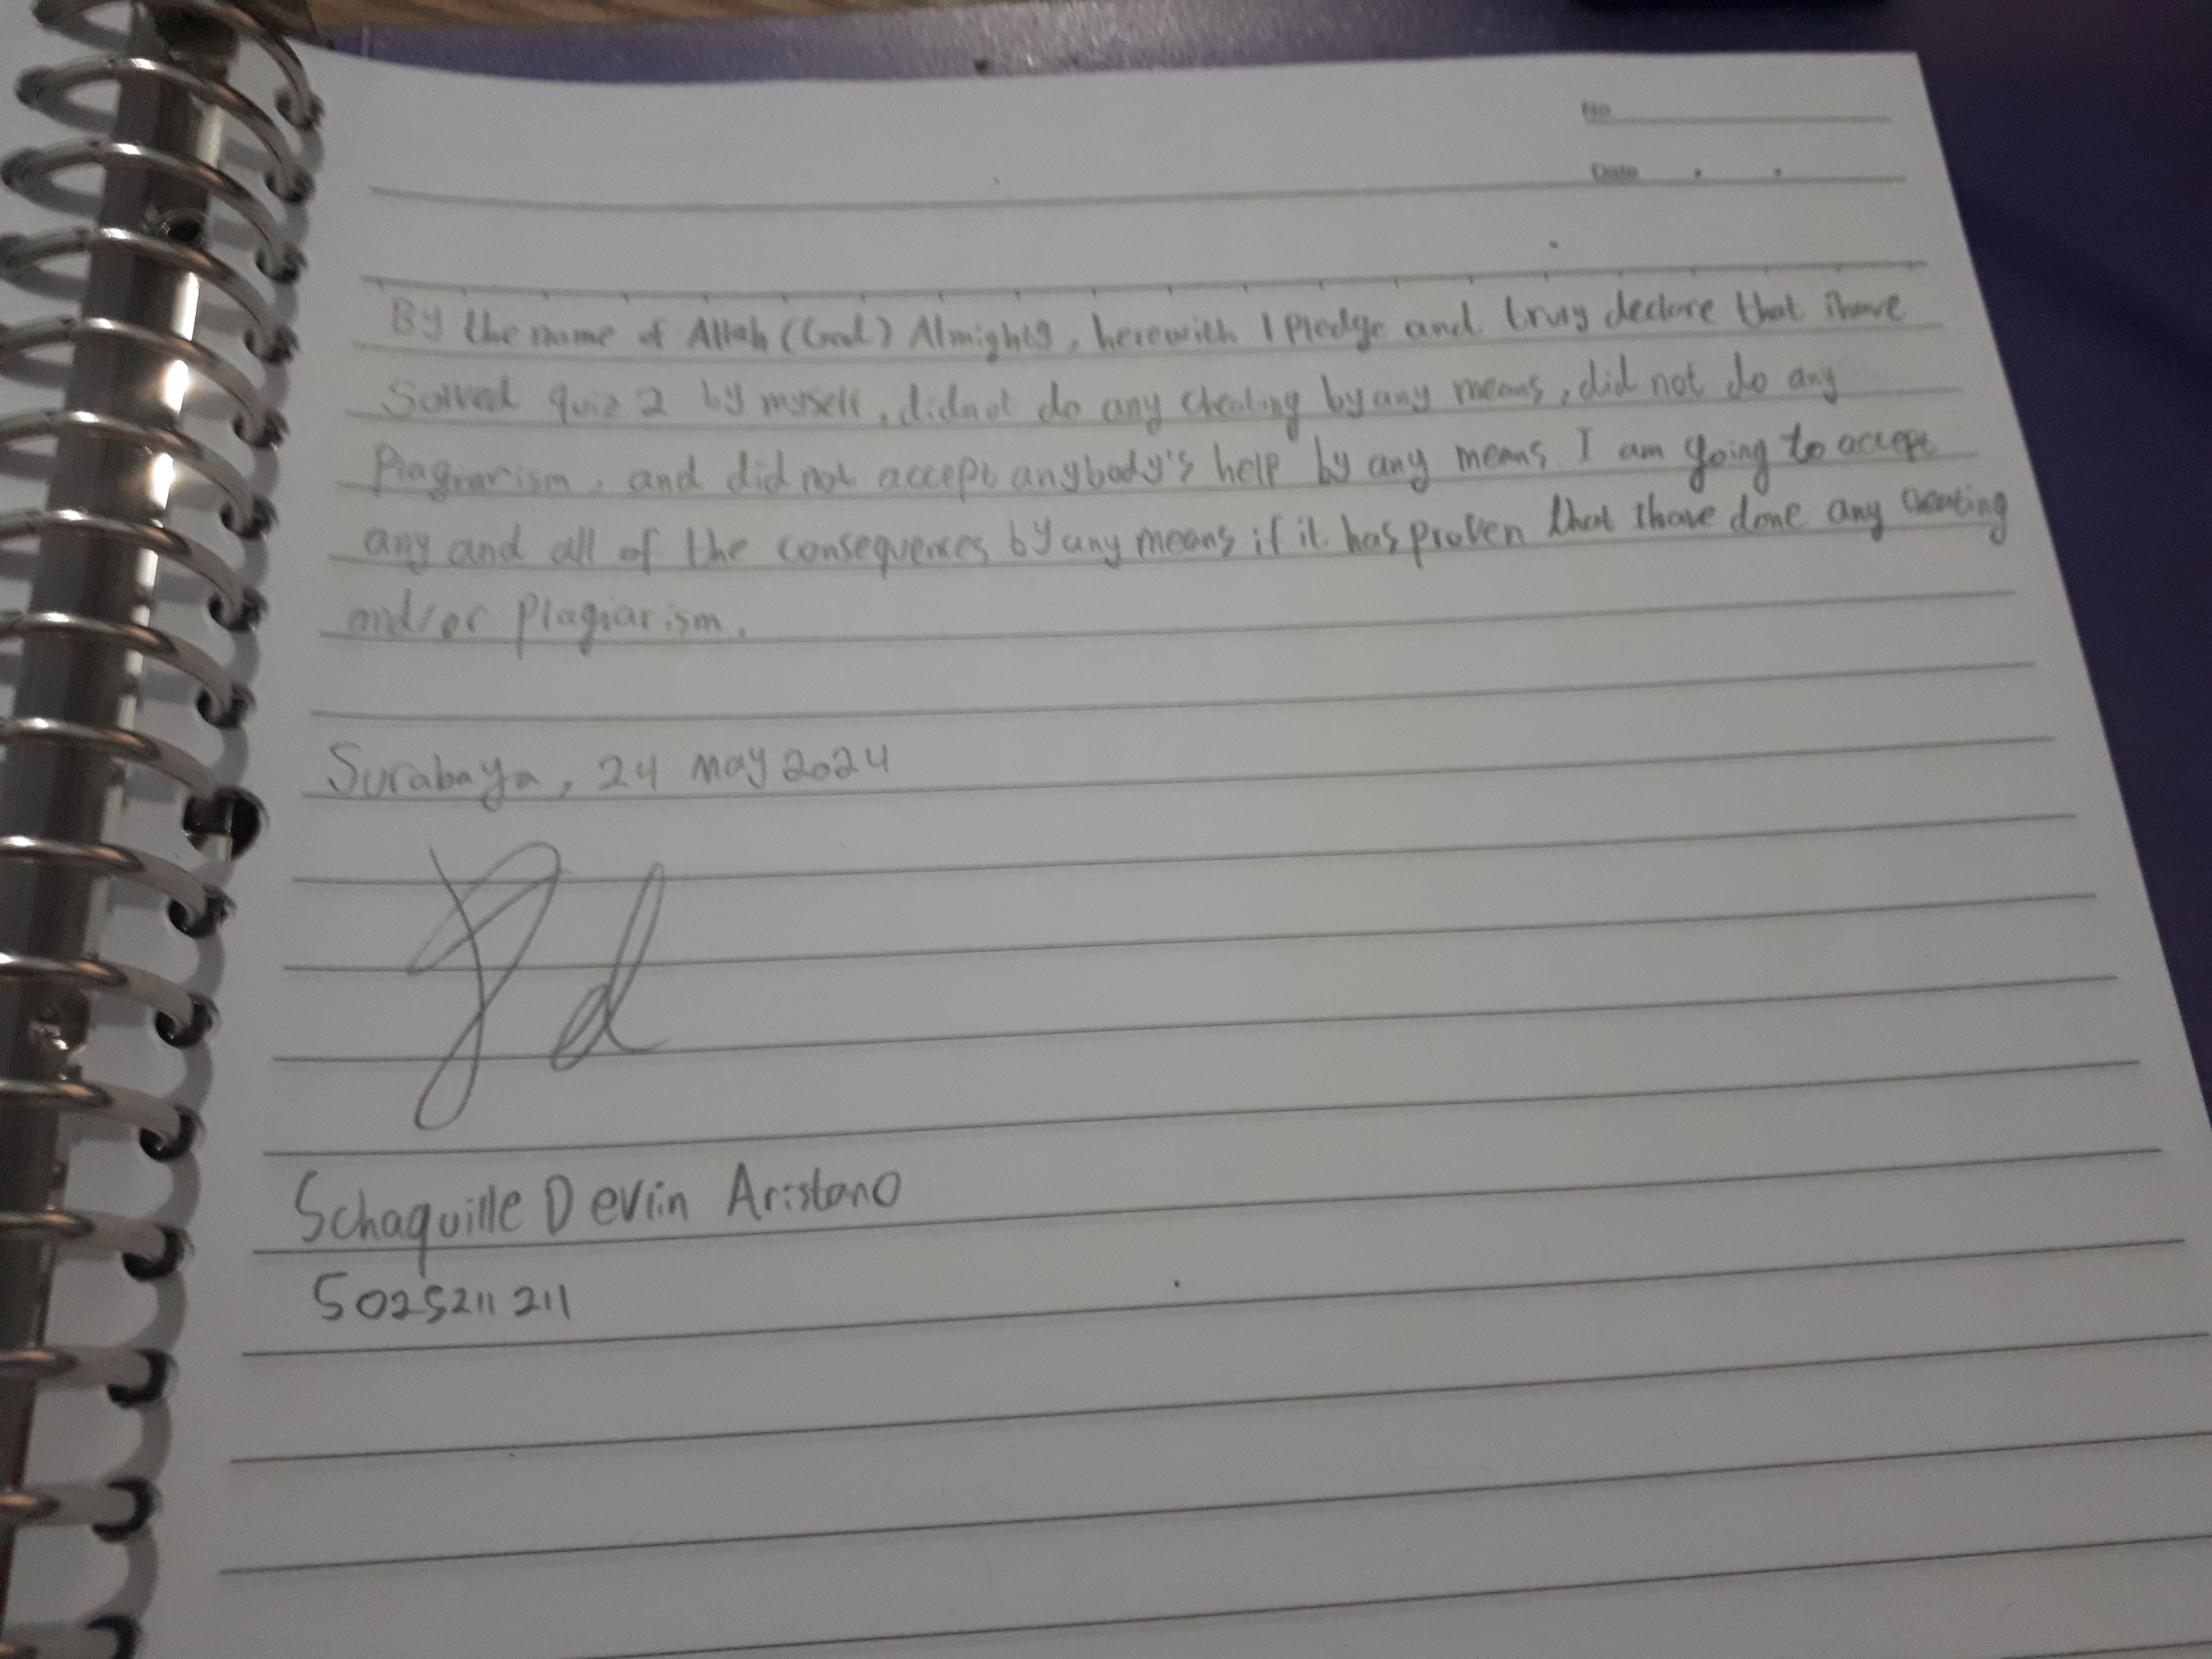 No
Date . .
By the name of Allah (God) Almighty, herewith I Pledge and truly declare that i have
Solved quiz 2 by myself, did not do any cheating by any means, did not do any
Plagiarism, and did not accept anybody's help by any means. I am going to accept
any and all of the consequences by any means if it has proven that i have done any cheating
and/or Plagiarism.
Surabaya, 24 may 2024
Schaquille Devlin Aristano
5025211211